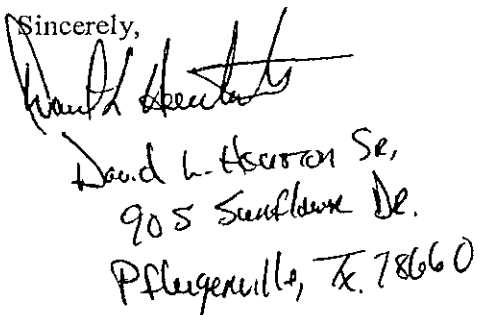 Sincerely,
David L. Sr.
905 Sunflower Dr.
Pflugerville, Tx. 78660